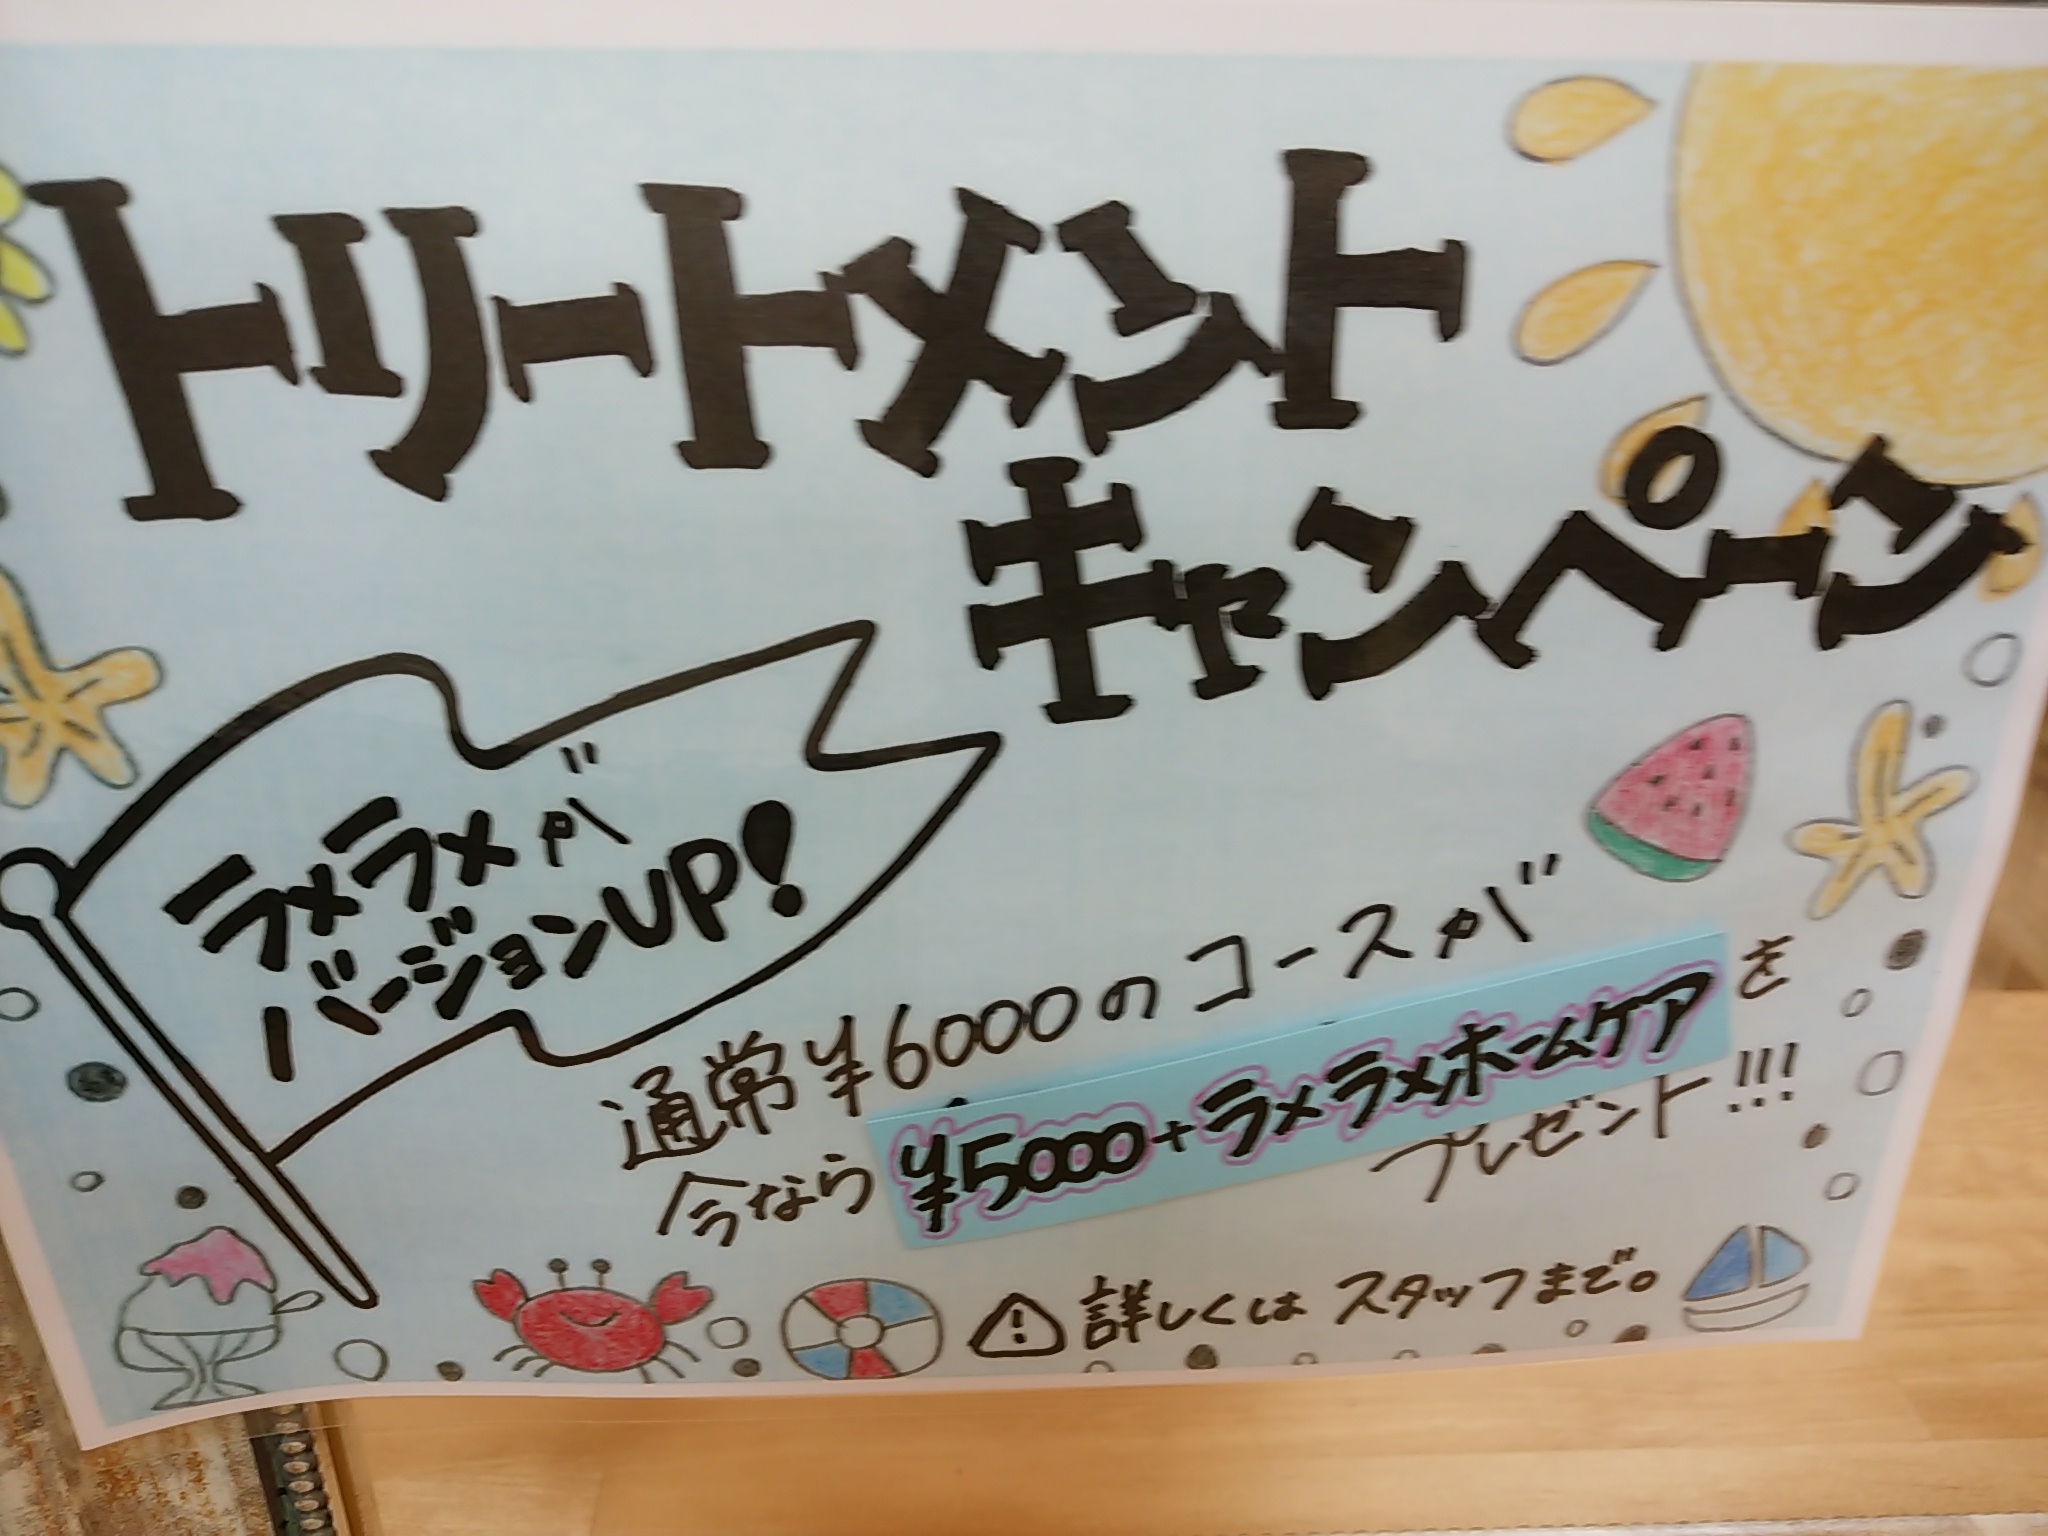 トリートメント
キャンペーン
ラメラメが
バージョンUP!
通常¥6000のコースが
今なら¥5000+ラメラメホームケアを
プレゼント!!!
詳しくはスタッフまで。